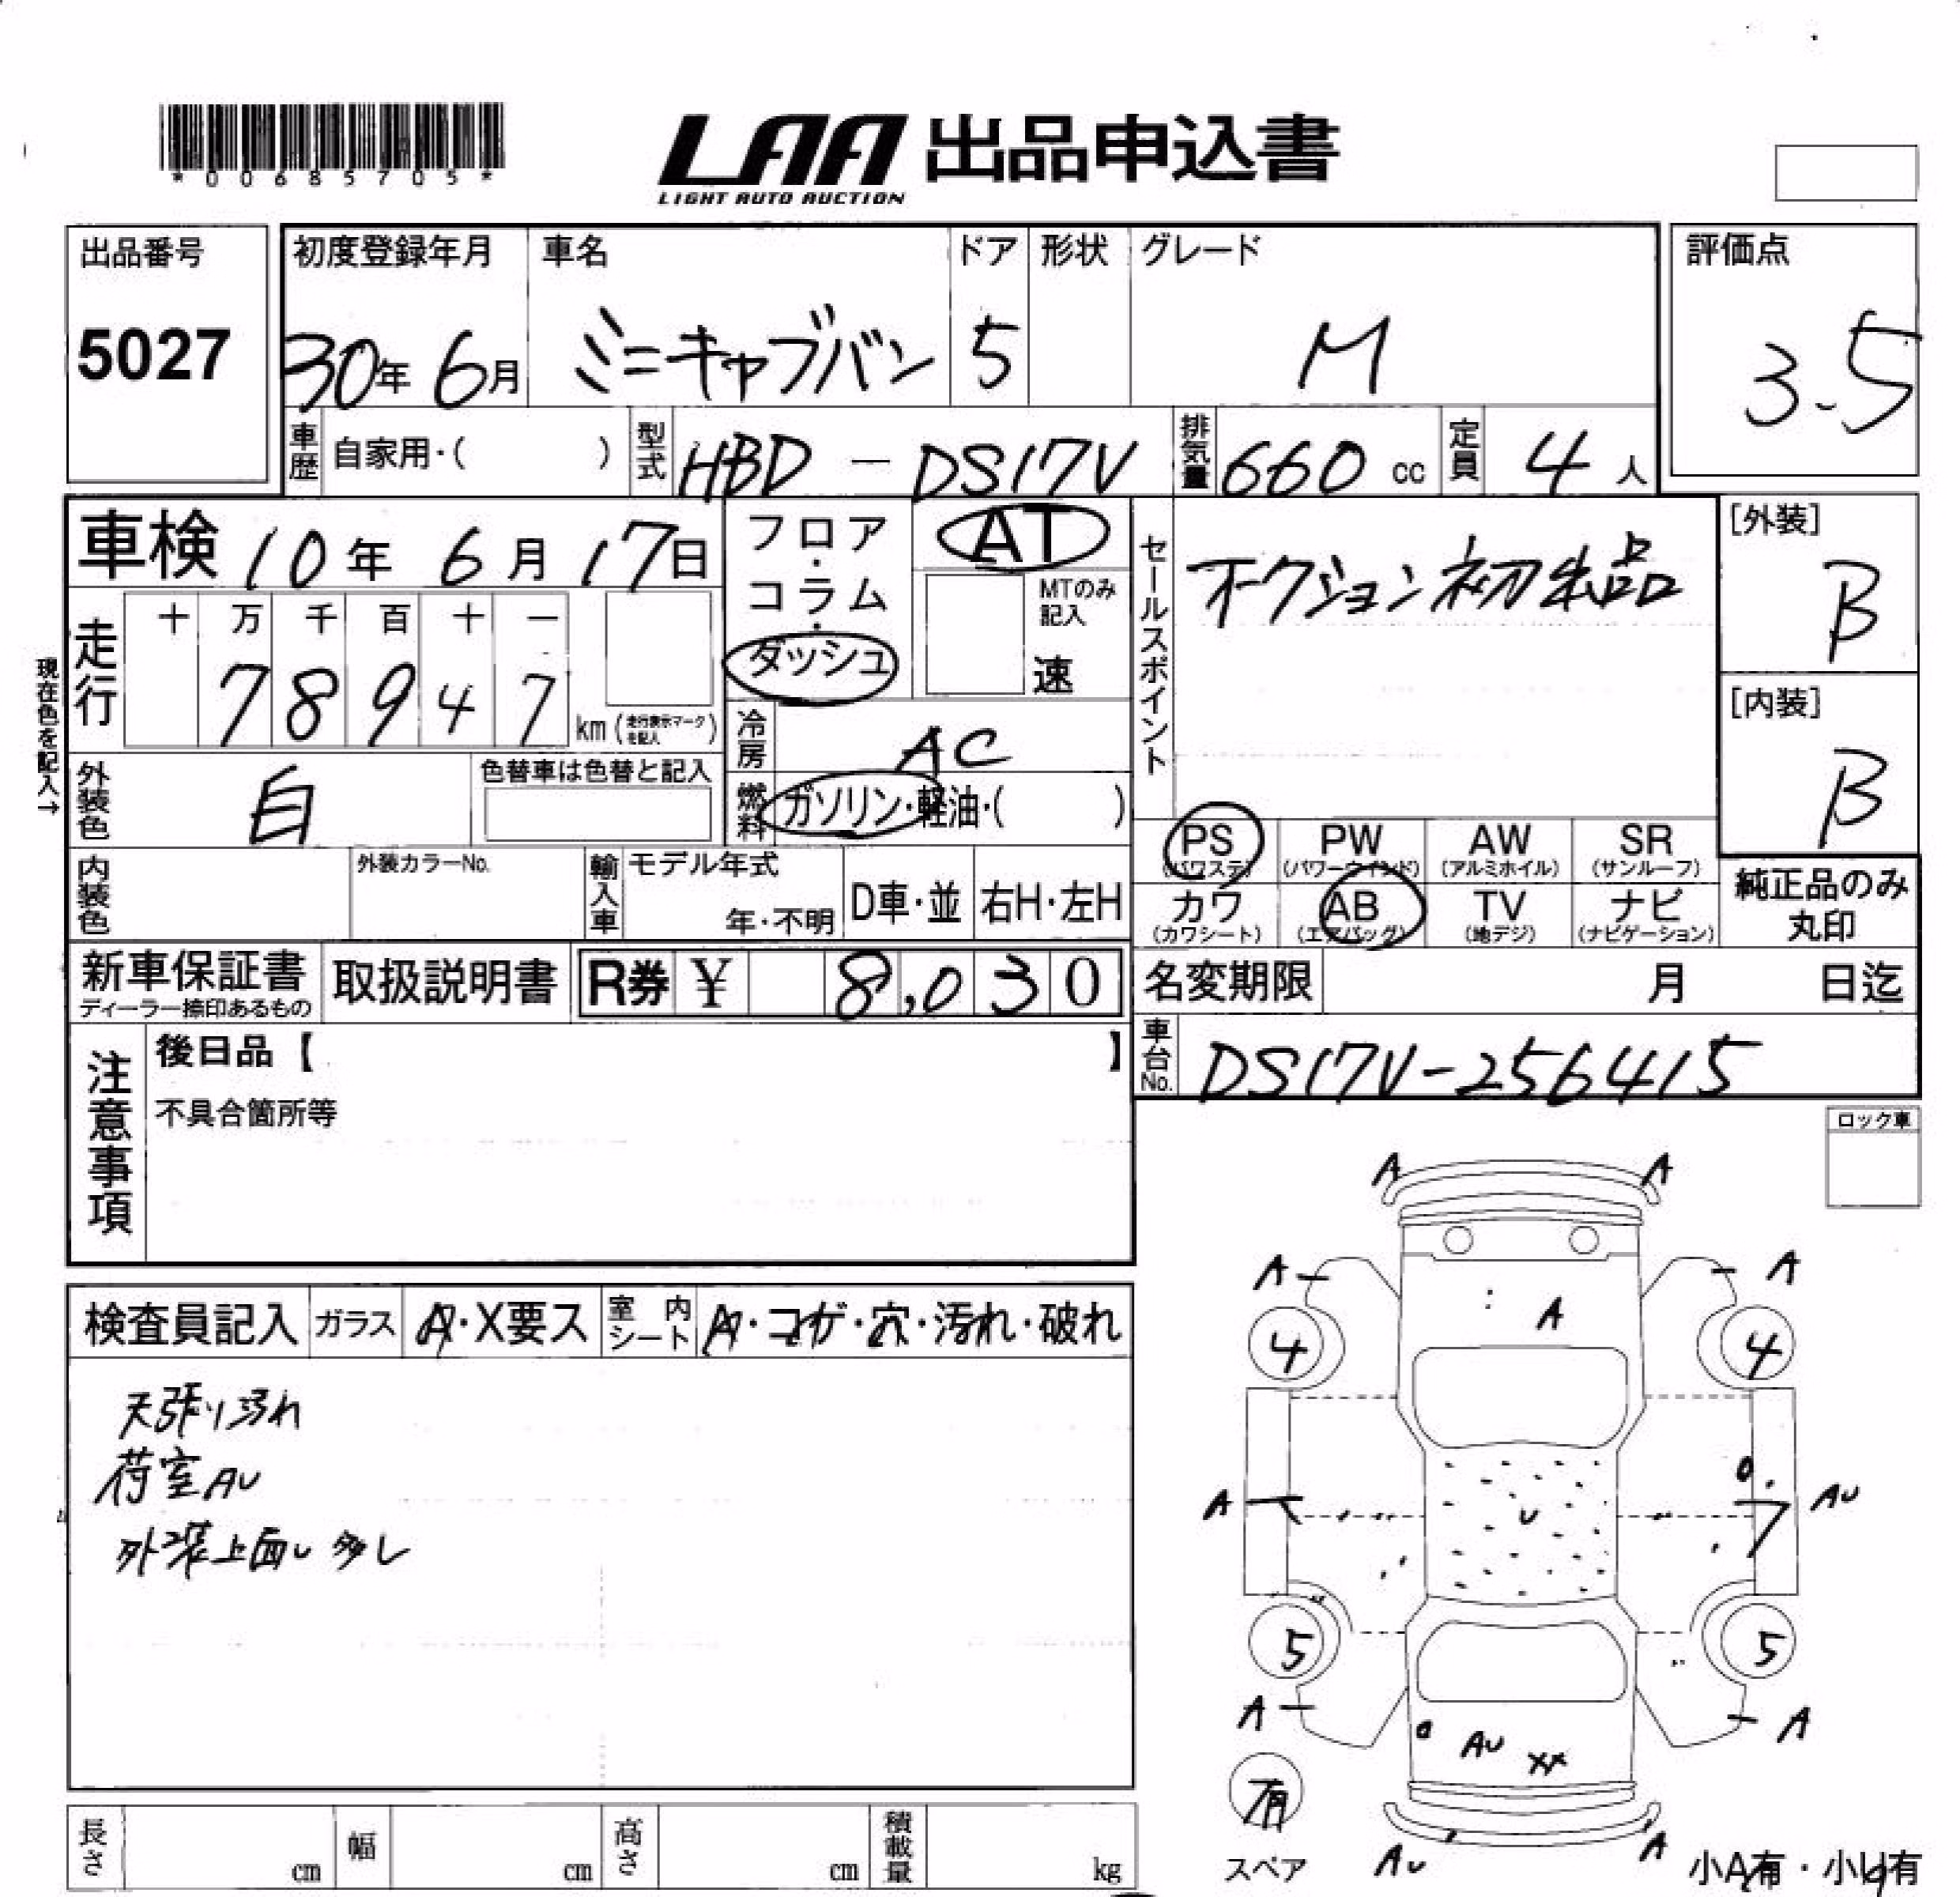 *00685705*
LAA 出品申込書
LIGHT AUTO AUCTION
出品番号 5027
初度登録年月 30年 6月
車名 ミニキャブバン
ドア 5
形状
グレード M
評価点 3.5
車歴 自家用・( )
型式 HBD - DS17V
排気量 660 cc
定員 4 人
車検 10年 6月 17日
現在色を記入→
走行 十 万 千 百 十 一
7 8 9 4 7 km (走行表示マークを記入)
フロア・コラム・ダッシュ
AT
MTのみ記入
速
冷房 AC
燃料 ガソリン・軽油・( )
セールスポイント
オークション初出品
[外装] B
[内装] B
外装色 白
色替車は色替と記入
内装色
外装カラーNo.
輸入車 モデル年式 年・不明
D車・並
右H・左H
PS (パワステ)
PW (パワーウインド)
AW (アルミホイル)
SR (サンルーフ)
カワ (カワシート)
AB (エアバッグ)
TV (地デジ)
ナビ (ナビゲーション)
純正品のみ丸印
新車保証書
ディーラー捺印あるもの
取扱説明書
R券 ¥ 8,030
名変期限 月 日迄
車台No. DS17V-256415
注意事項
後日品【 】
不具合箇所等
ロック車
検査員記入
ガラス A・X要ス
室内シート A・コゲ・穴・汚れ・破れ
天張り汚れ
荷室AU
外装上面U 多し
A A
A A
A
4 4
A U AU
5 5
A A
AU XX
有
スペア
AU A
小A有・小U有
長さ cm
幅 cm
高さ cm
積載量 kg